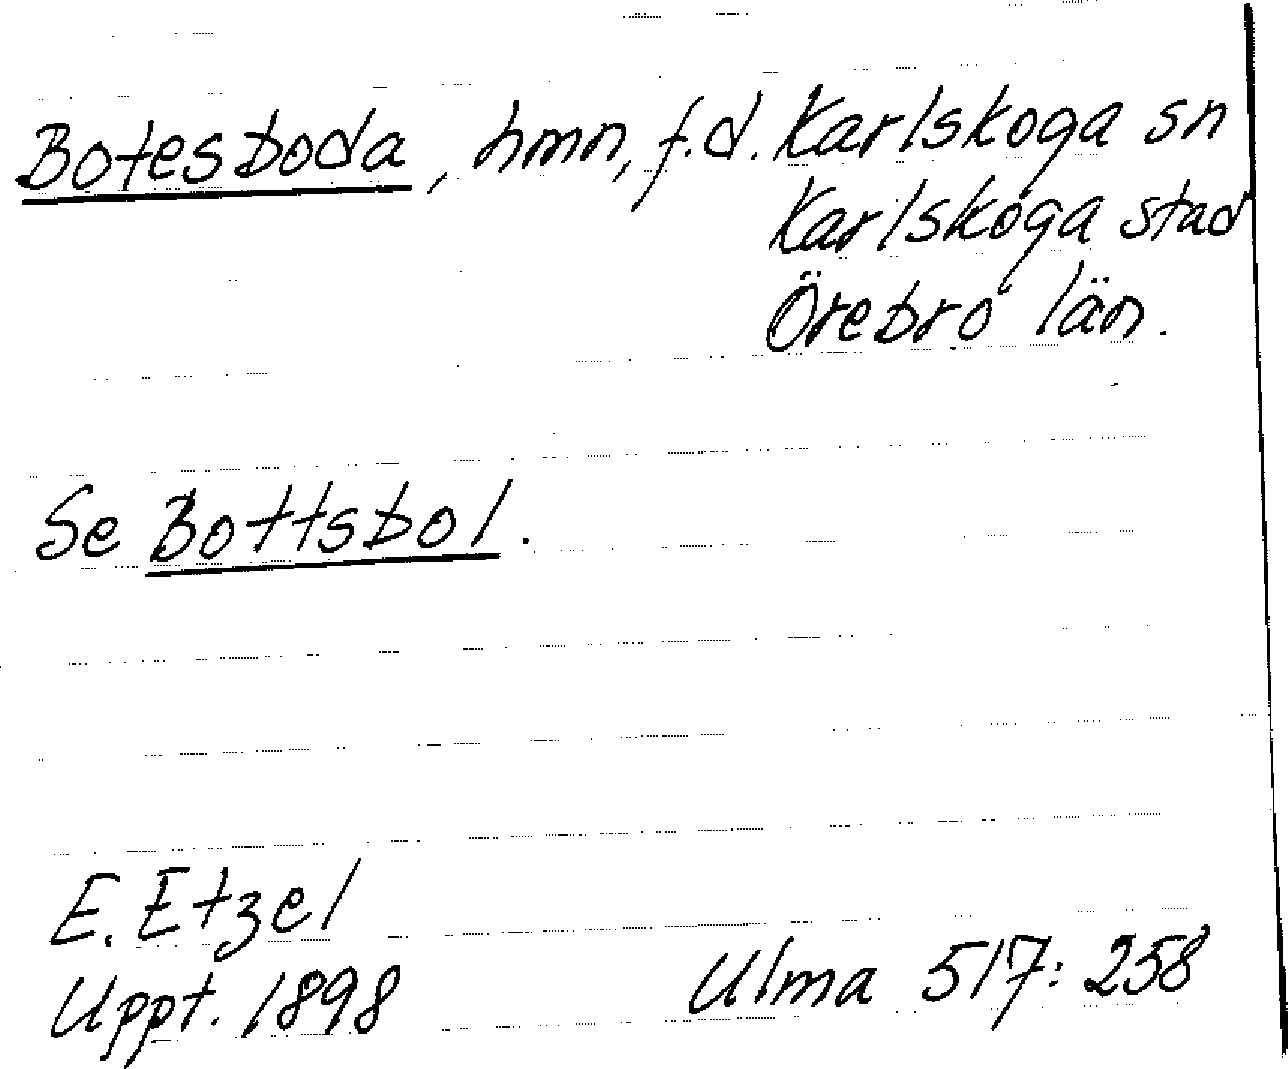 Botesboda, hmn, f.d. Karlskoga sn
Karlskoga stad
Örebro län.
Se Bottsbol.
E. Etzel
Uppt. 1898
Ulma 517:258